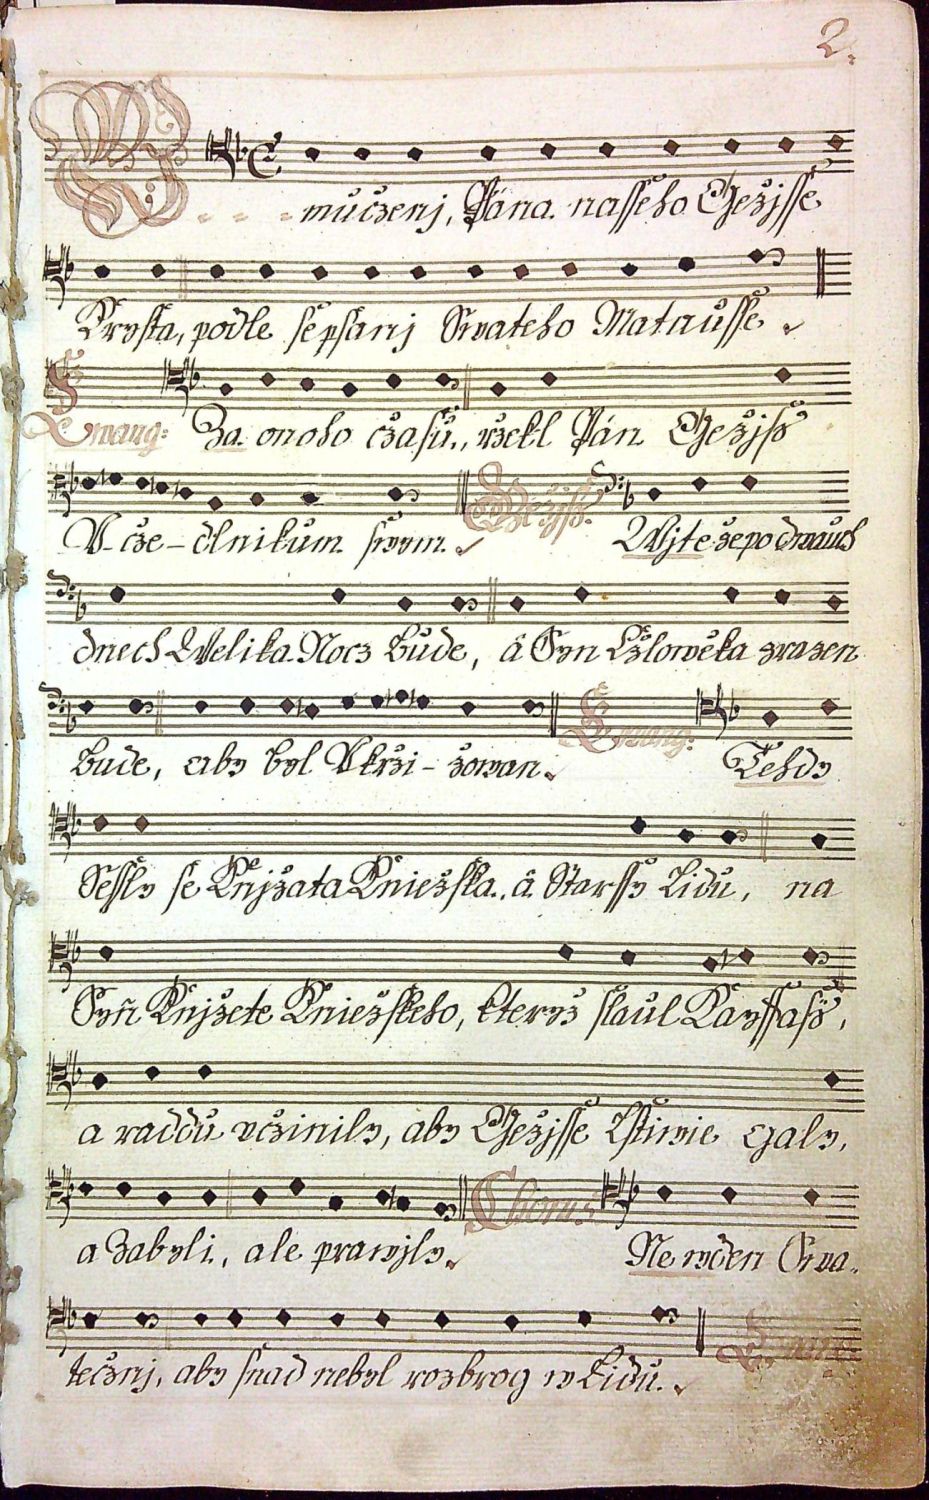 2.
mučzenj, Pána nasseho Gežjsse
Krysta, podle sepsanj Swateho Matausse
Ewang: Za onoho czasu, rzekl Pán Gežjss
V-cze-dlnikum swym. Gežjss. Wjte že po dwauch
dnech Welika Nocz bude, á Syn Czlowěka zrazen
bude, aby byl Vkrzi-zowan. Ewang: Tehdy
Sessly se Knjžata Kniežska, á Starssy Lidu, na
Syň Knjžete Kniežskeho, kteryz slaul Kayffass,
a raddu včzinily, aby Gežjsse Lstiwie gali,
a Zabyli, ale prawjly. Chorus Ne w den Swa-
tečznj, aby snad nebyl rozbrog w Lidu. Ewang: